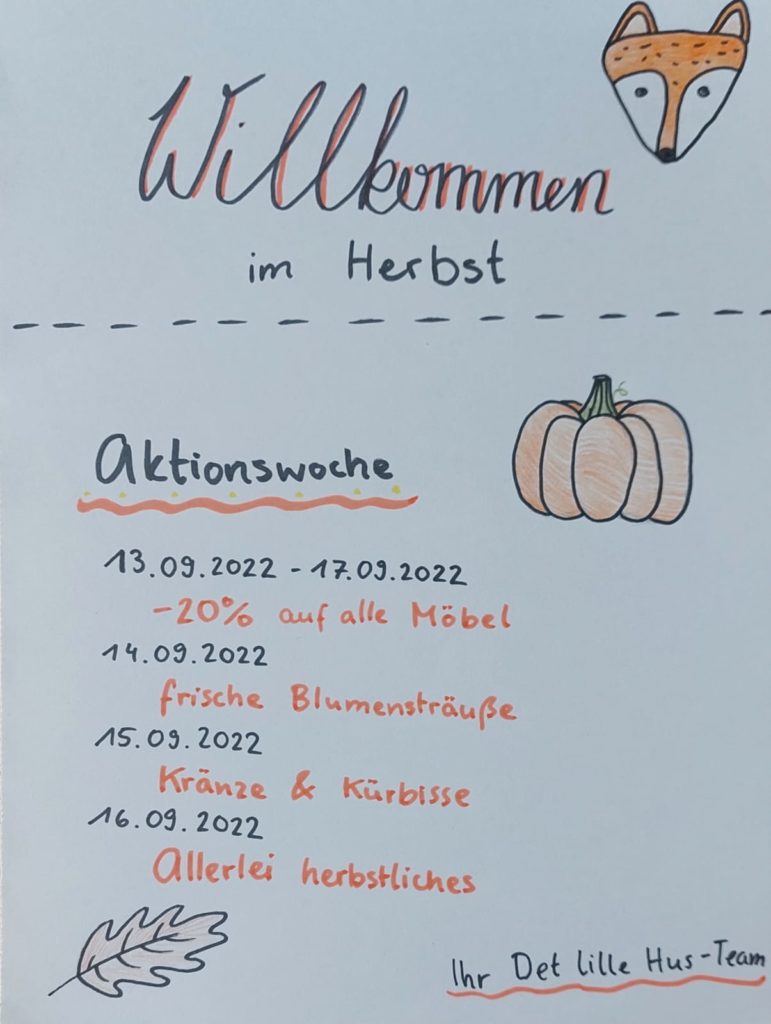 Willkommen
im Herbst
Aktionswoche
13.09.2022 - 17.09.2022
-20% auf alle Möbel
14.09.2022
frische Blumensträuße
15.09.2022
Kränze & Kürbisse
16.09.2022
Allerlei herbstliches
Ihr Det lille Hus-Team